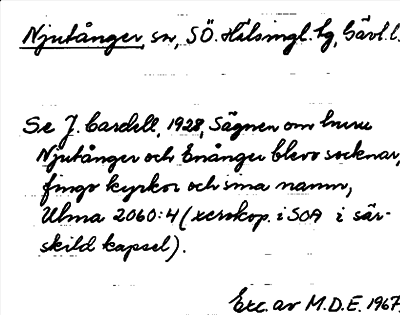 Njutånger, sn, SÖ. Hälsingl. tg, Gävl. l.
Se J. Cardell, 1928, Sägnen om huru
Njutånger och Enånger blevo socknar,
fingo kyrkor och sina namn,
Ulma 2060:4 (xeroxkop. i SOA i sär-
skild kapsel).
Exc. av M.D.E. 1967.